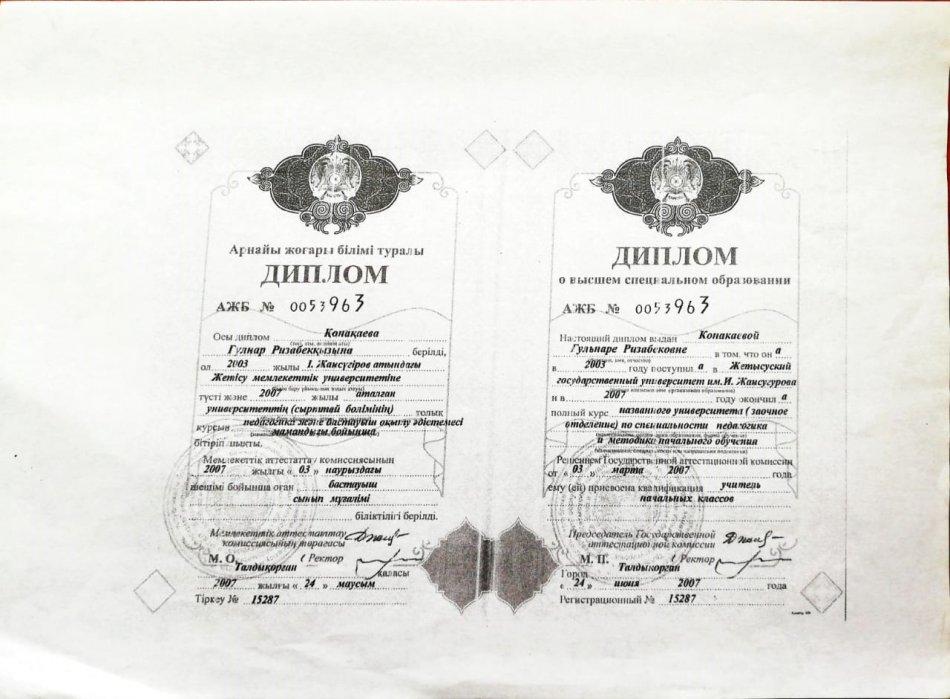 Арнайы жоғары білімі туралы
ДИПЛОМ
АЖБ № 0053963
Осы диплом Қонақаева
Гүлнар Ризабекқызына берілді,
ол 2003 жылы І. Жансүгіров атындағы
Жетісу мемлекеттік университетіне
түсті және 2007 жылы аталған
университеттің (сырттай бөлімінің) толық
курсын педагогика және бастауыш оқыту әдістемесі
мамандығы бойынша
бітіріп шықты.
Мемлекеттік аттестаттау комиссиясының
2007 жылғы « 03 » наурыздағы
шешімі бойынша оған бастауыш
сынып мұғалімі
біліктілігі берілді.
Мемлекеттік аттестаттау
комиссиясының төрағасы
М. О. Ректор
Талдықорған қаласы
2007 жылғы « 24 » маусым
Тіркеу № 15287
ДИПЛОМ
о высшем специальном образовании
АЖБ № 0053963
Настоящий диплом выдан Конакаевой
Гульнаре Ризабековне в том, что он а
в 2003 году поступил а в Жетысуский
государственный университет им.И. Жансугурова
и в 2007 году окончил а
полный курс названного университета ( заочное
отделение) по специальности педагогика
и методика начального обучения
Решением Государственной аттестационной комиссии
от « 03 » марта 2007 года
ему (ей) присвоена квалификация учитель
начальных классов
Председатель Государственной
аттестационной комиссии
М. П. Ректор
Город Талдыкорган
« 24 » июня 2007 года
Регистрационный № 15287